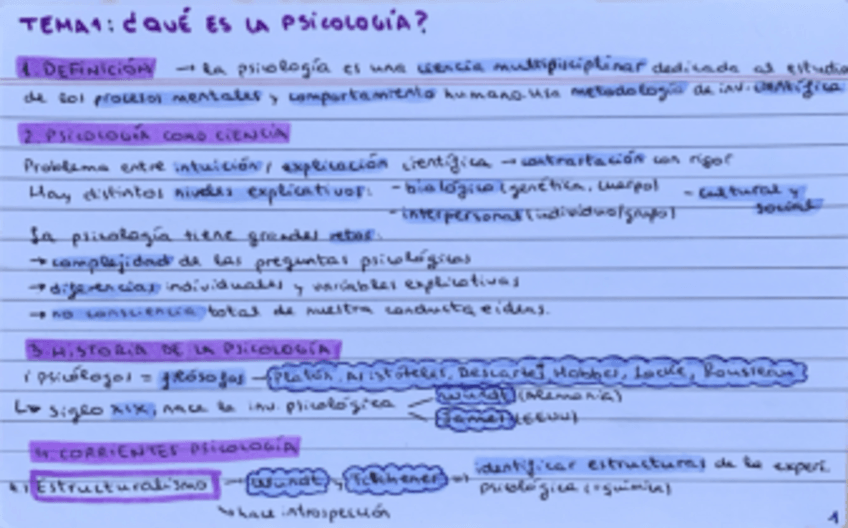 TEMA 1: ¿QUÉ ES LA PSICOLOGÍA?
1. DEFINICIÓN → La psicología es una ciencia multidisciplinar dedicada al estudio
de los procesos mentales y comportamiento humano. Usa metodología de inv. científica
2. PSICOLOGÍA COMO CIENCIA
Problema entre intuición / explicación científica → contrastación con rigor
Hay distintos niveles explicativos: - biológico (genética, cuerpo) - cultural y
- interpersonal (individuo/grupo) social
La psicología tiene grandes retos:
→ complejidad de las preguntas psicológicas
→ diferencias individuales y variables explicativas
→ no consciencia total de nuestra conducta e ideas.
3. HISTORIA DE LA PSICOLOGÍA
psicólogos = filósofos → Platón, Aristóteles, Descartes, Hobbes, Locke, Rousseau
↳ siglo XIX, nace la inv. psicológica Wundt (Alemania)
James (EEUU)
4. CORRIENTES PSICOLOGÍA
Estructuralismo → Wundt y Titchener → identificar estructuras de la experi.
psicológica (=química)
↳ hace introspección
1